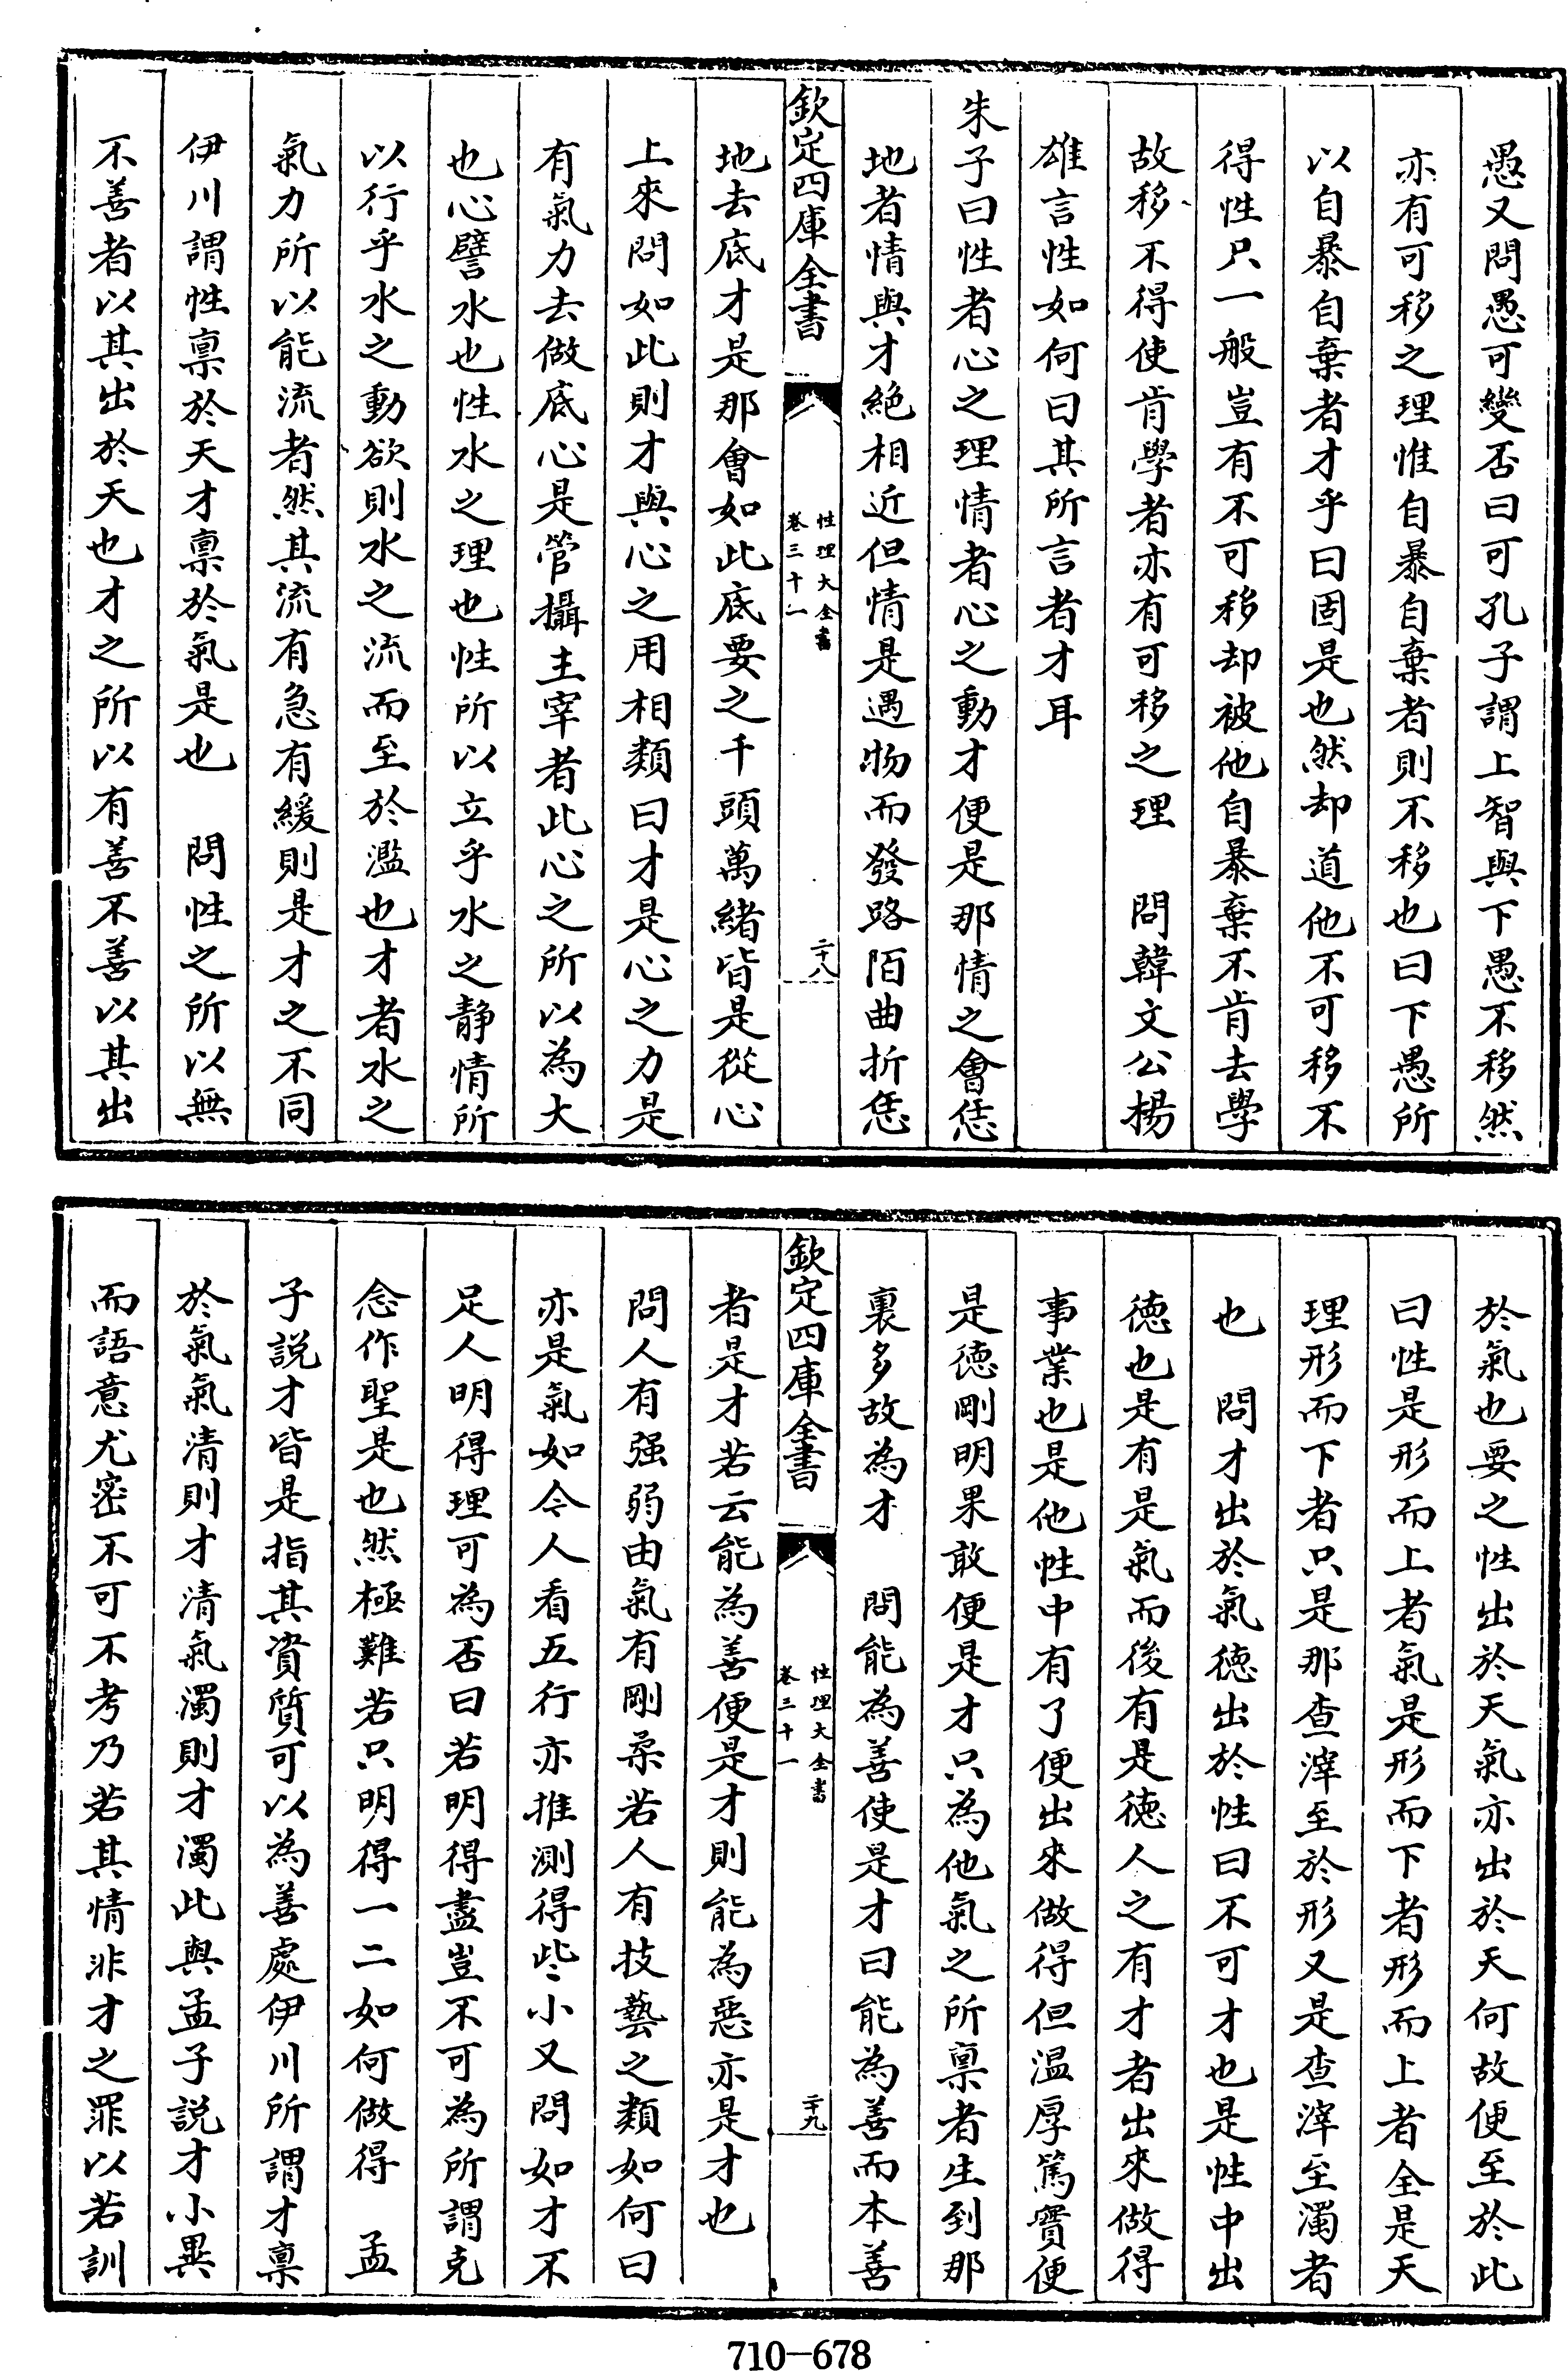 愚又問愚可變否曰可孔子謂上智與下愚不移然
亦有可移之理惟自暴自棄者則不移也曰下愚所
以自暴自棄者才乎曰固是也然却道他不可移不
得性只一般豈有不可移却被他自暴棄不肯去學
故移不得使肯學者亦有可移之理　問韓文公揚
雄言性如何曰其所言者才耳
朱子曰性者心之理情者心之動才便是那情之會恁
地者情與才絶相近但情是遇物而發路陌曲折恁
欽定四庫全書
性理大全書
卷三十一
二十八
地去底才是那會如此底要之千頭萬緒皆是從心
上來問如此則才與心之用相類曰才是心之力是
有氣力去做底心是管攝主宰者此心之所以為大
也心譬水也性水之理也性所以立乎水之静情所
以行乎水之動欲則水之流而至於濫也才者水之
氣力所以能流者然其流有急有緩則是才之不同
伊川謂性禀於天才禀於氣是也　問性之所以無
不善者以其出於天也才之所以有善不善以其出
於氣也要之性出於天氣亦出於天何故便至於此
曰性是形而上者氣是形而下者形而上者全是天
理形而下者只是那查滓至於形又是查滓至濁者
也　問才出於氣徳出於性曰不可才也是性中出
徳也是有是氣而後有是徳人之有才者出來做得
事業也是他性中有了便出來做得但温厚篤實便
是徳剛明果敢便是才只為他氣之所禀者生到那
裏多故為才　問能為善使是才曰能為善而本善
欽定四庫全書
性理大全書
卷三十一
二十九
者是才若云能為善便是才則能為惡亦是才也
問人有强弱由氣有剛柔若人有技藝之類如何曰
亦是氣如今人看五行亦推測得些小又問如才不
足人明得理可為否曰若明得盡豈不可為所謂克
念作聖是也然極難若只明得一二如何做得　孟
子説才皆是指其資質可以為善處伊川所謂才禀
於氣氣清則才清氣濁則才濁此與孟子説才小異
而語意尤密不可不考乃若其情非才之罪以若訓
710—678